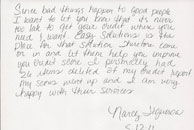 Since bad things happen to good people
I want to let you know that it's never
too late to get your credit where you
need I want Easy Solutions is the
place for that solution Structure come
on in and let them help you improve
you credit score I personally had
26 items deleted of my credit report
my scores went up and I am very
happy with their services
Nancy
5-12-11